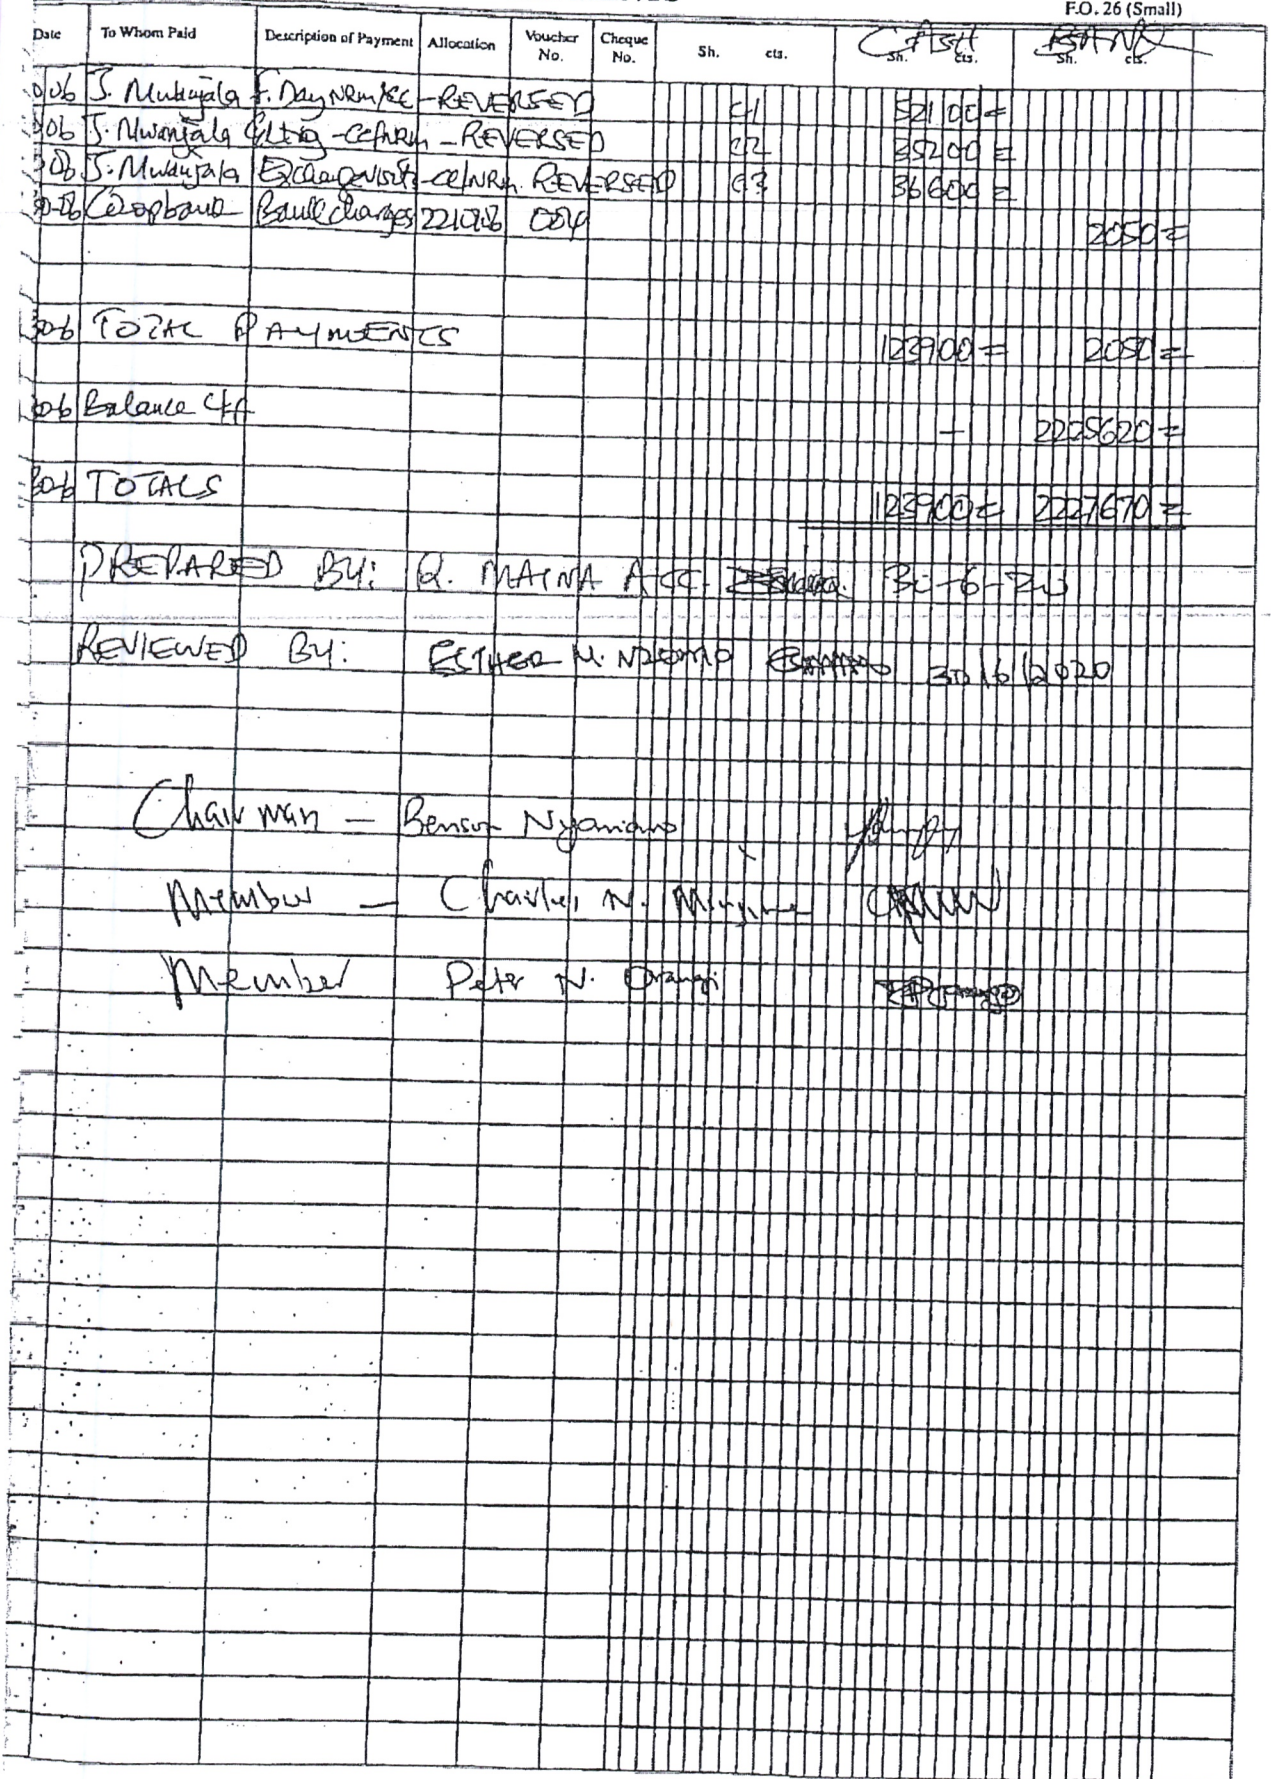 F.O. 26 (Small)
Date To Whom Paid Description of Payment Allocation Voucher No. Cheque No. Sh. cts. CASH Sh. cts. BANK Sh. cts.
06 J. Mwanjala F. Day NRM/CC - REVERSED C1 52100=
06 J. Mwanjala - CC/NRM - REVERSED C2 35200=
06 J. Mwanjala Exchange visit - CC/NRM REVERSED C3 36600=
30-06 Coopbank Bank charges 004 2050=
3006 TOTAL PAYMENTS 123900= 2050=
3006 Balance C/f - 2225620=
3006 TOTALS 123900= 2227670=
PREPARED BY: Q. MAINA ACC. 30-6-20
REVIEWED BY: ESTHER N. 30/6/2020
Chairman - Benson
Member - Charles N.
Member Peter N. Orangi